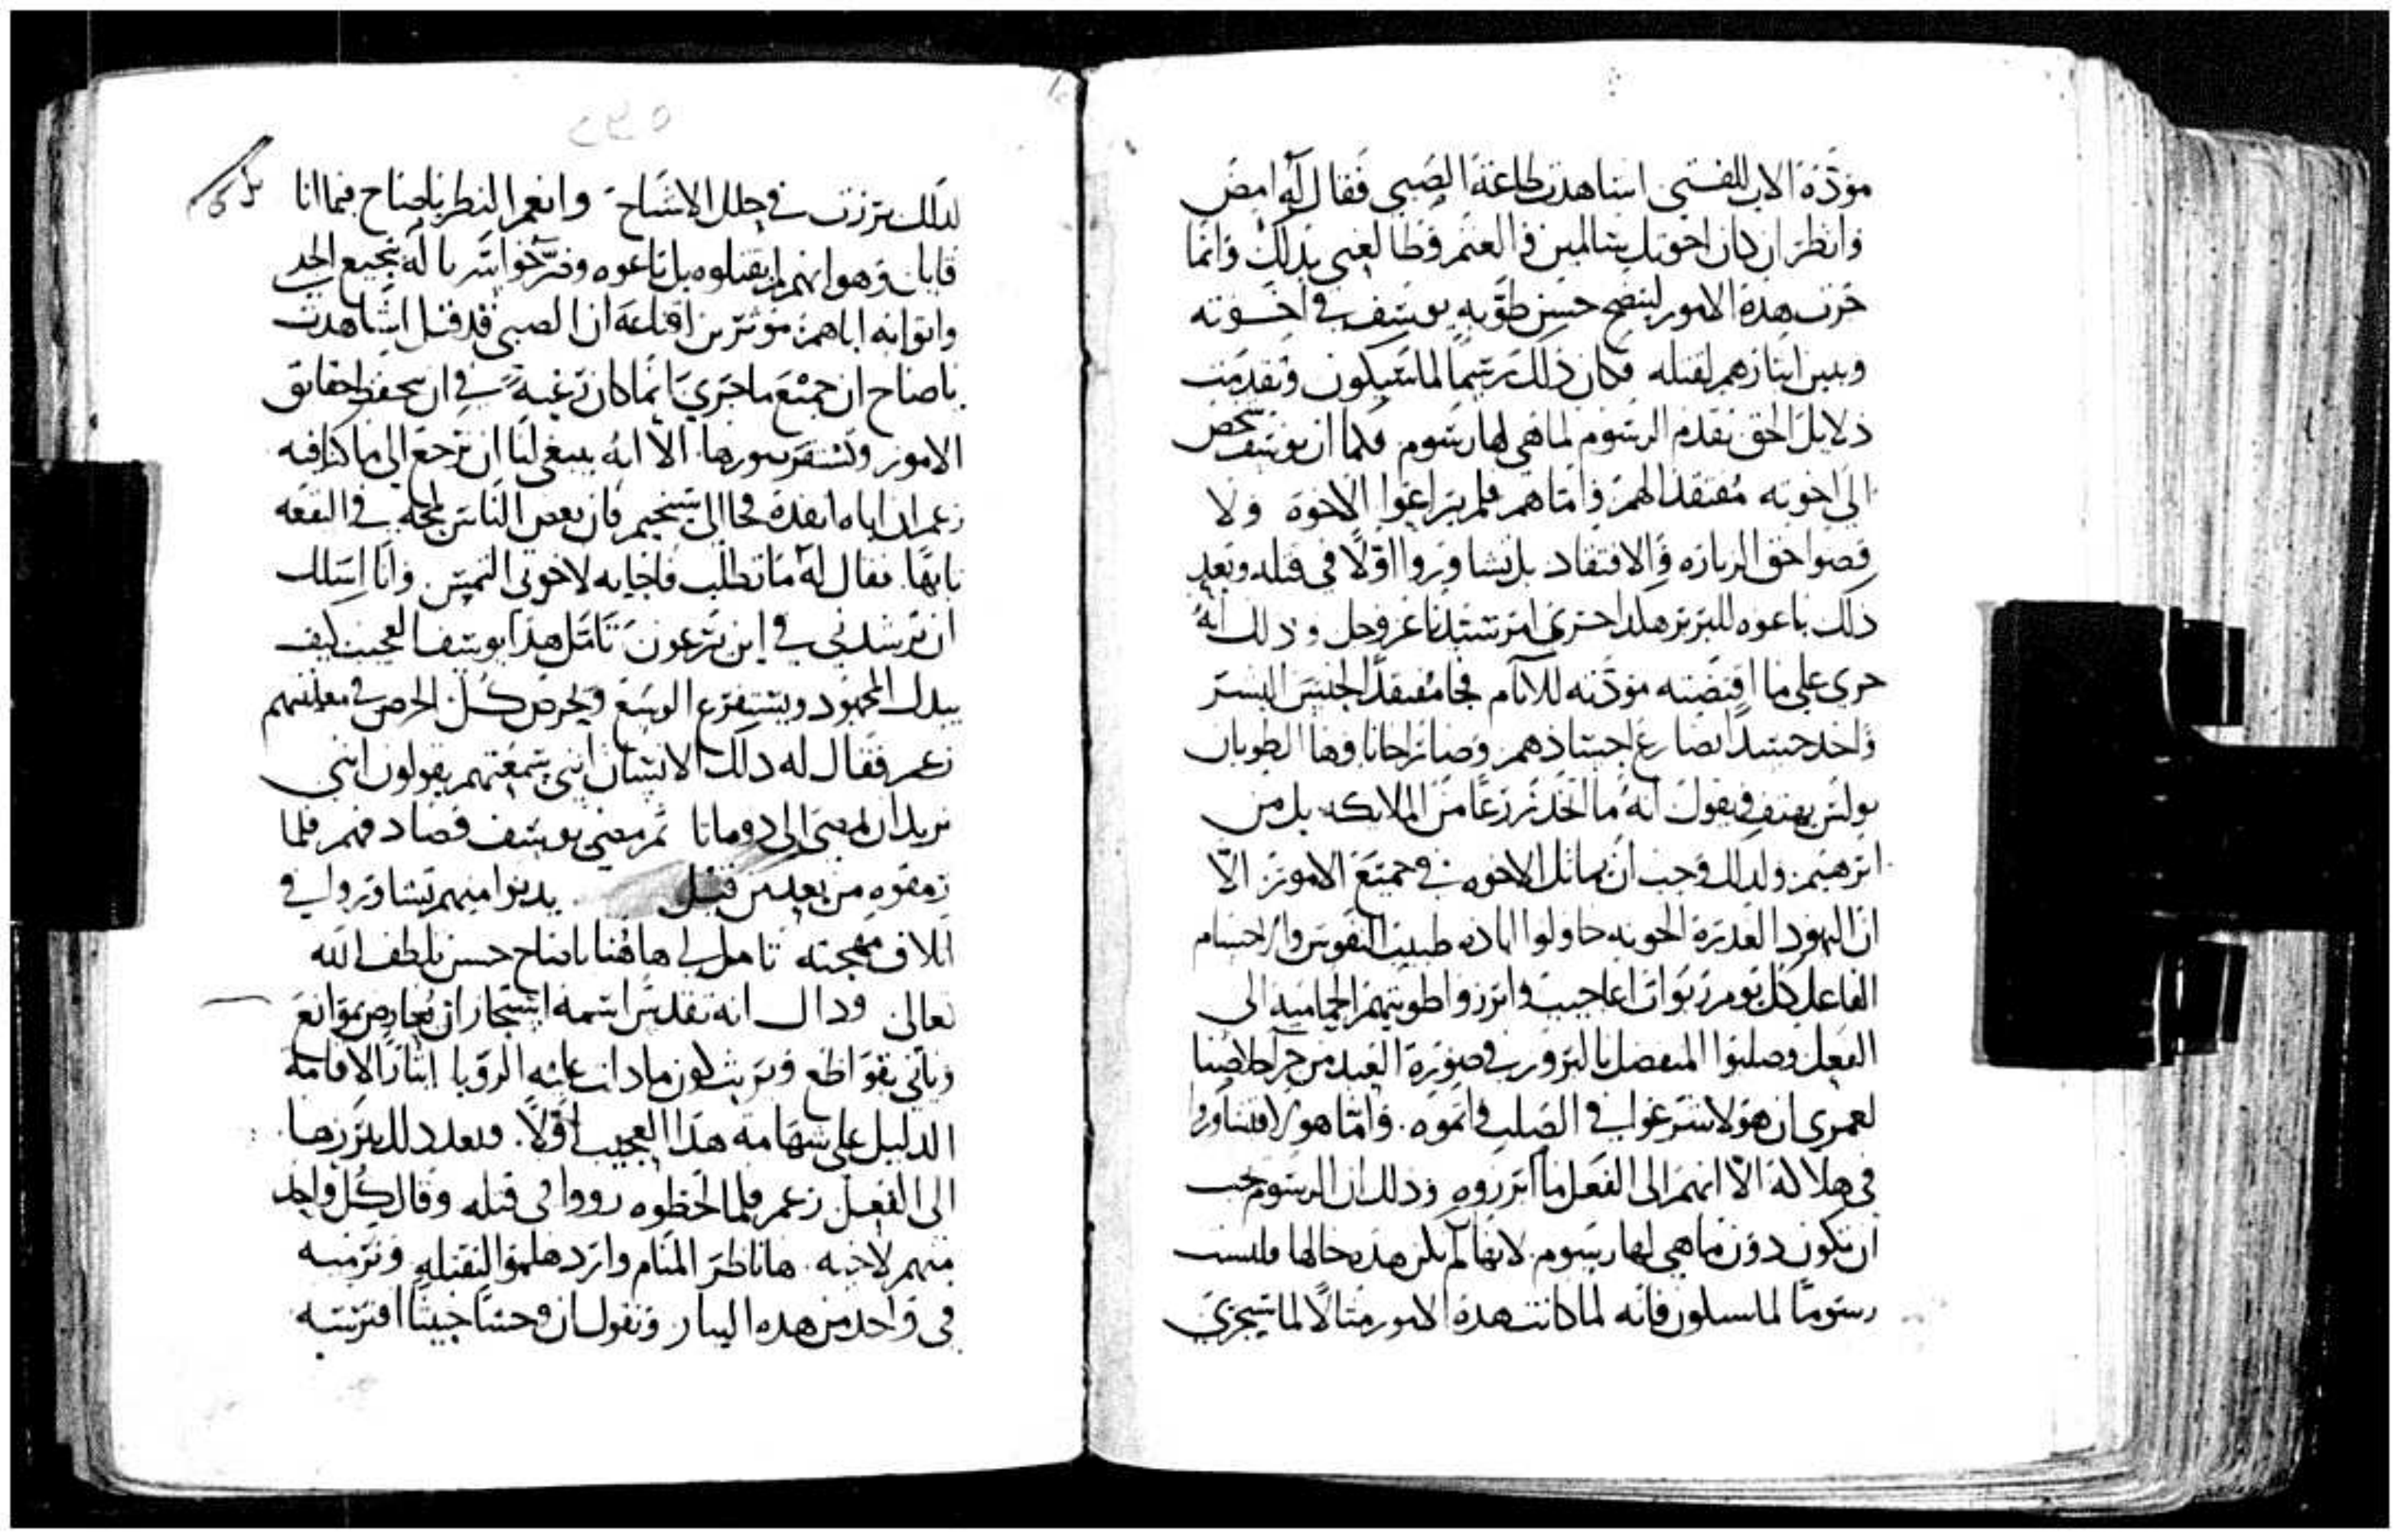 مودة الاب للفتى اشاهدت طاعة الصبي فقال له امض
وانظر ان كان اخوتك سالمين في الغنم وطالعني بذلك وانما
جرت هذه الامور ليتضح حسن طوية يوسف في اخوته
ويبين ابتارهم لقتله فكان ذلك رسمًا لما سيكون وتقدمت
دلايل الحق تقدم الرسوم لما هي لها رسوم فلما ان يوسف شخص
الى اخوته مفتقدًا لهم واما هم فلم يراعوا الاخوة ولا
قصوا حق الزياره والافتقاد بل تشاوروا اولًا في قتله وبعد
ذلك باعوه للبربر هكذا جرى امر سيدنا عز وجل وذلك انه
جرى على ما اقتضته مودته للانام فجا مفتقدًا لجنس البشر
واخد جسدًا يضارع اجسادهم وصار اخانا وها الطوبان
بولس يهتف ويقول انه ما اتخذ زرعًا من الملايكه بل من
ابرهيم ولذلك وجب ان يماثل الاخوه في جميع الامور الا
ان اليهود الغدرة الخونه حاولوا اباده طبيب النفوس والاجسام
الفاعل كل يوم ربوات اعاجيب وابرزوا طويتهم الحاميه الى
الفعل وصلبوا المتفضل بالبروز في صورة العبد من جرا خلاصنا
لعمري ان هولا شرعوا في الصلب واتموه. واما هولا فتشاوروا
في هلاكه الا انهم الى الفعل ما ابرزوه وذلك ان الرسوم يجب
ان تكون دون ما هي لها رسوم لانها لم تكن هذه حالها فليست
رسومًا لما سيكون فانه لما كانت هذه الامور مثالًا لما سيجري
لذلك برزت في حلل الاشباح وانعم النظر ياصاح فيما انا
قايل وهو انهم لم يقتلوه بل باعوه وضرخوا سربالة بنجيع الجدي
واتوا به اباهم موثرين اقناعه ان الصبي قد قتل اشاهدت
ياصاح ان جميع ما جرى انما كان رغبة في ان تحفظ حقايق
الامور وتستقر سورها الا انه ينبغي لنا ان نرجع الى ما كنا فيه
زعم ان اباه انفذه فجا الى شخيم فان بعض الناس لمحه في البقعه
تايهًا. فقال له ما تطلب فاجابه لاخوتي التمس وانا اسلك
ان ترشدني في اين يرعون تامل هذا يوسف العجيب كيف
يبدل المجهود ويستفرغ الوسع ويحرص كل الحرص في معاينتهم
زعم فقال له ذلك الانسان انني سمعتهم يقولون انني
نريد ان نمضي الى دوماتا ثم مضى يوسف فصادفهم فلما
رمقوه من بعيد من قبل يدنوا منهم تشاوروا في
اتلاف مهجته تامل لي هاهنا ياصاح حسن تلطف الله
تعالى وذاك انه تقدس اسمه استجاز ان تعارض موانع
وياتي بقواطع وتريث كون مادلت عليه الرويا ايثارًا لاقامة
الدليل على شهامة هذا العجيب اولًا. وبعد ذلك يبرزها
الى الفعل زعم فلما لحظوه رووا في قتله وقال كل واحد
منهم لاخيه. هاناظر المنام وارد هلموا لنقتله ونرميه
في واحد من هذه البيار ونقول ان وحشًا خبيثًا افترسه